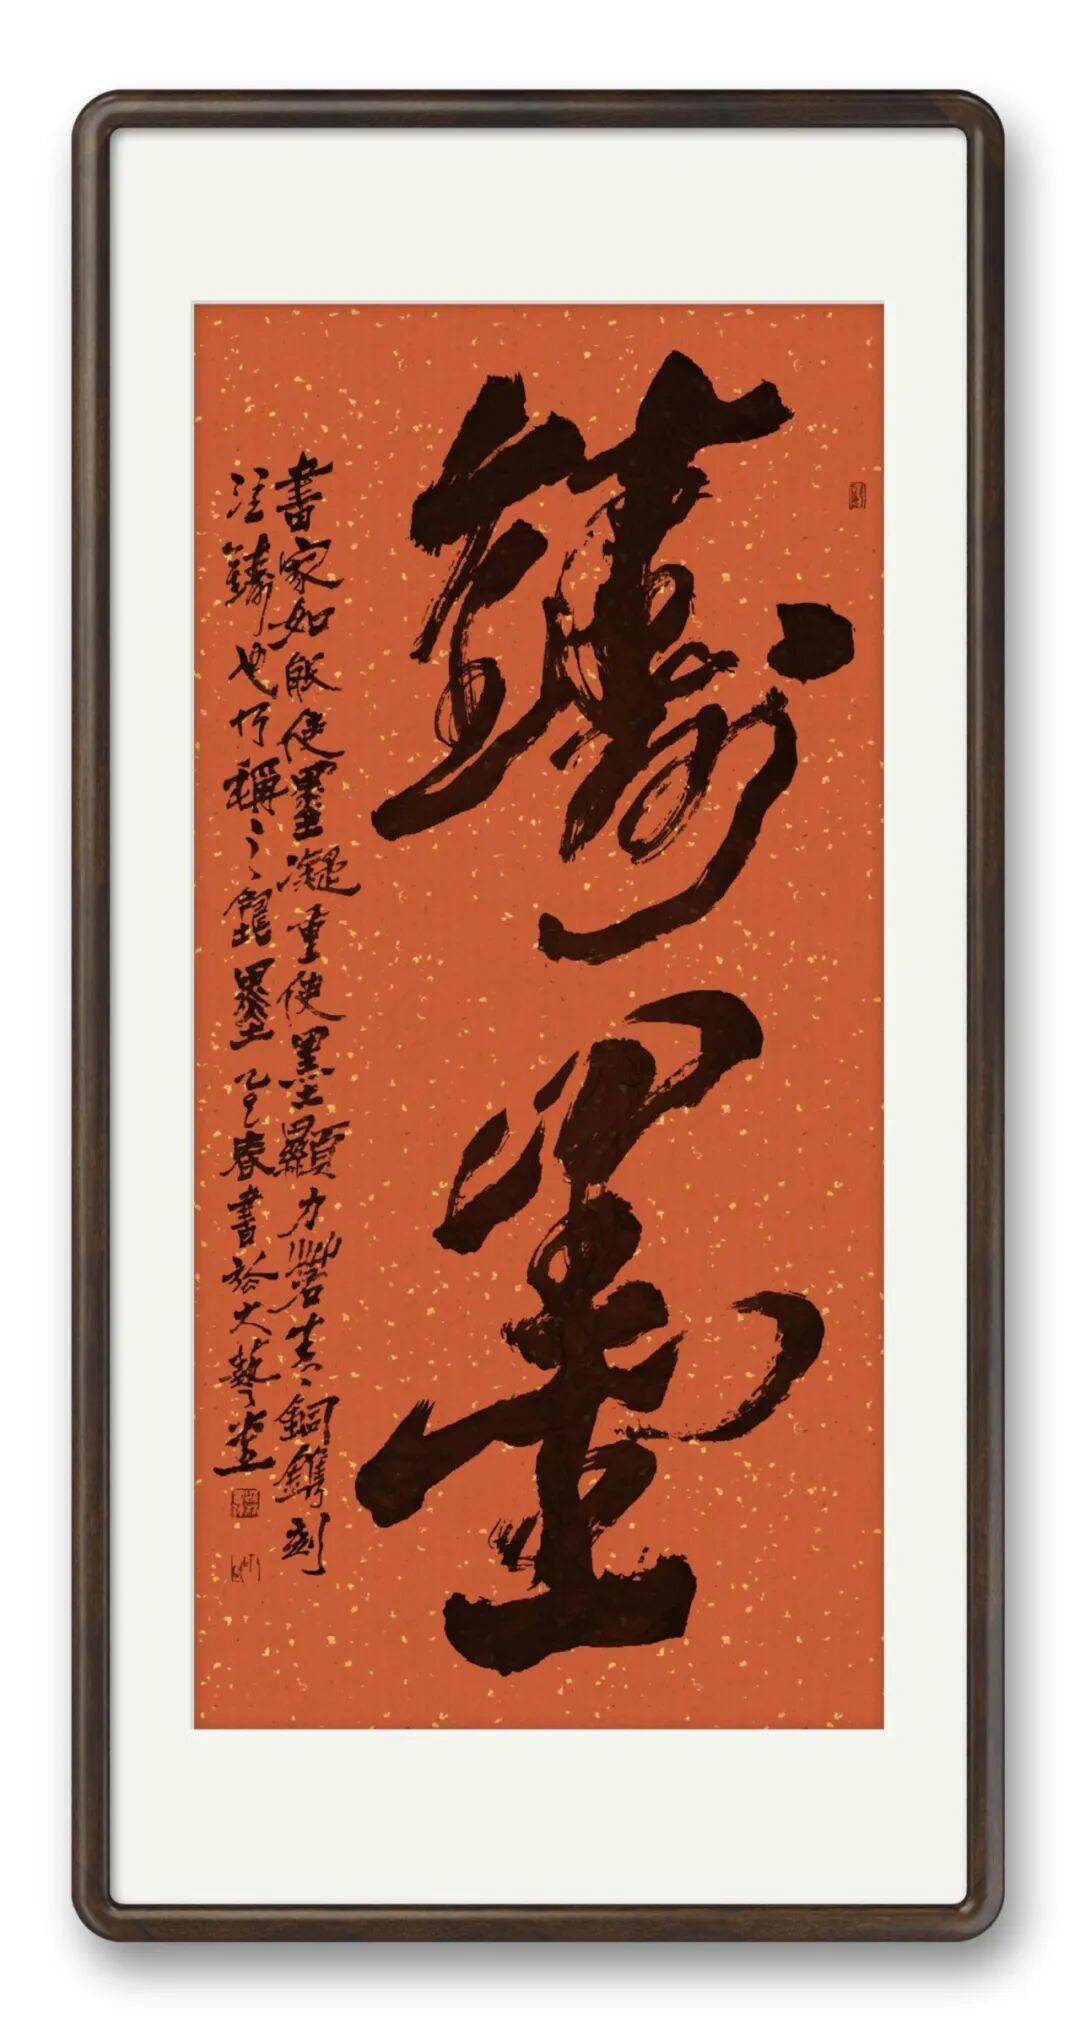 鑄墨
書家如能使墨凝重使墨顯力若青銅鐫刻
注鑄也可稱之墨乙巳春書於大藝堂